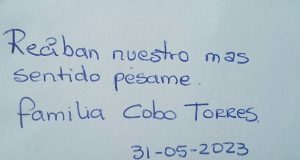 Reciban nuestro mas
sentido pésame.
familia Cobo TORRES.
31-05-2023